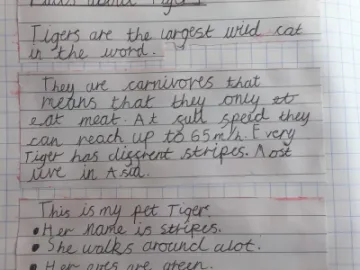 Facts about Tigers.
Tigers are the largest wild cat
in the word.
They are carnivores that
means that they only et
eat meat. At full speed they
can reach up to 65m/h. Every
Tiger has diffrent stripes. Most
live in Asia.
This is my pet Tiger
• Her name is stripes.
• She walks around alot.
• Her eyes are green.